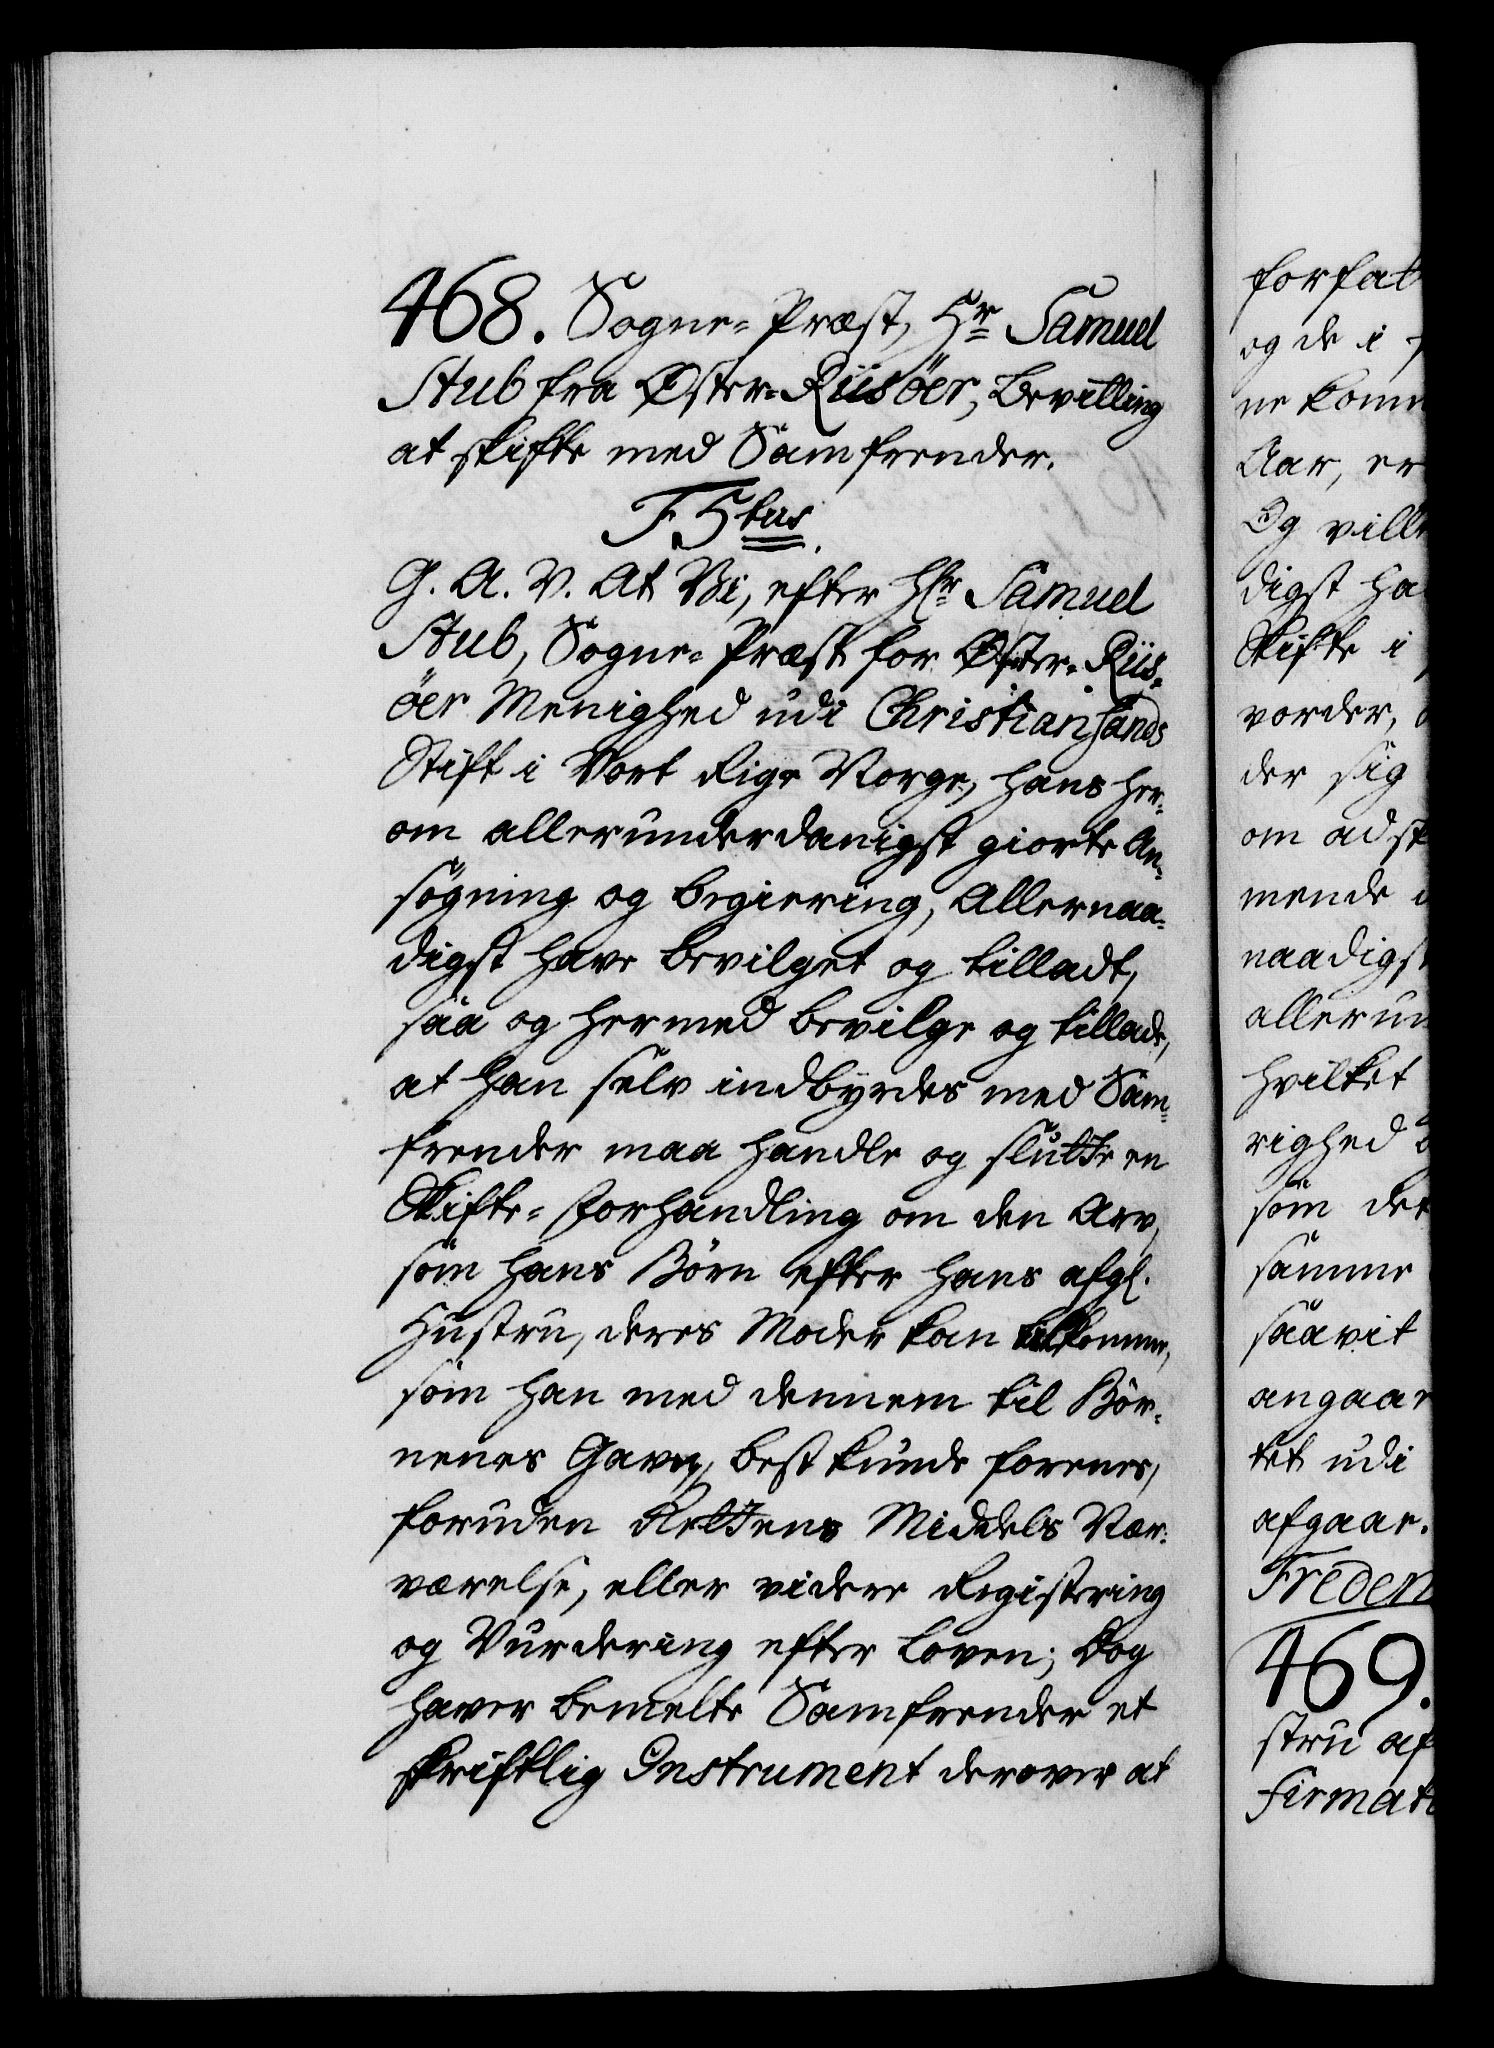 468. Sogne-Præst, Hr Samuel
Stub fra Øster-Riisöer, Bevilling
at skifte med Samfrender.
F. 5tus.
G. A. V. At Vi, efter Hr Samuel
Stub, Sogne-Præst for Øster-Riis-
öer Menighed udi Christiansands
Stift i Vort Rige Norge, hans her-
om allerunderdanigst giorte An-
søgning og Begiering, Allernaa-
digst have bevilget og tilladt,
saa og hermed bevilge og tillade,
at han selv indbyrdes med Sam-
frender maa handle og slutte en
Skifte-Forhandling om den Arv,
som hans Børn efter hans afgl.
Hustru, deres Moder kan tilkomme,
som han med dennem til Bør-
nenes Gavn, best kunde forenes,
foruden Rettens Middels Nær-
værelse, eller videre Registering
og Vurdering efter Loven; Dog
haver bemelte Samfrender et
skriftlig Instrument derover at
forfat
og de i
ne komm
Aar, er
Og ville
digst ha
Skifte i
vorder,
der sig
om adsk
mende
naadigst
allerun
hvilket
righed
som det
samme
saavit
angaar
tet udi
afgaae.
Frederi
469.
stru af
firmat